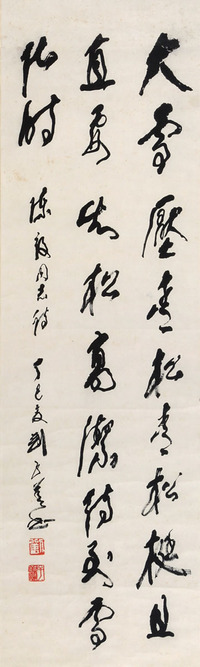 大雪壓青松青松挺且
直要知松高潔待到雪
化時
陳毅同志詩
丁巳夏劉子善書